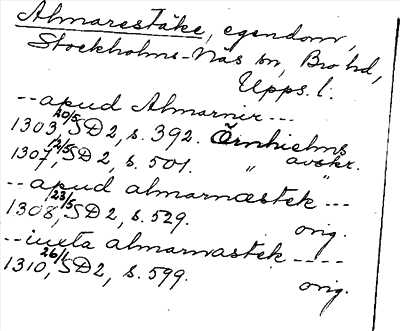 Almarestäke, egendom,
Stockholms-Näs sn, Bro hd,
Upps. l.
--apud Almarnir---
1303 20/5, SD 2, s. 392. Örnhielms
1307 12/5, SD 2, s. 501. " avskr. "
--apud almarnæstek---
1308, 23/5 SD 2, s. 529. orig.
--iuxta almarnastek----
1310, 26/1 SD 2, s. 599. orig.